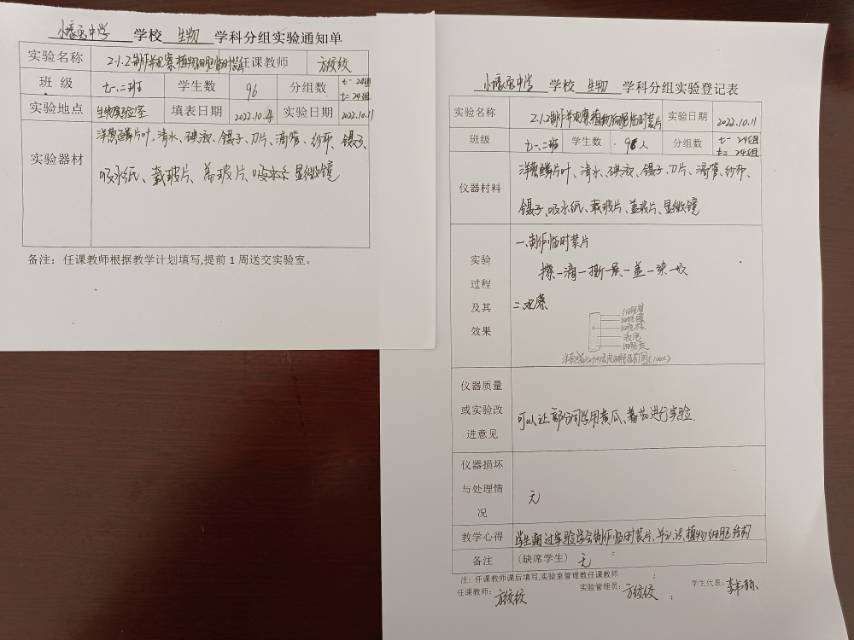 学校 生物 学科分组实验通知单
实验名称 2.1.2制作并观察植物细胞临时装片 任课教师
班级 七一、二班 学生数 96 分组数 七一 24组
七二 24组
实验地点 生物实验室 填表日期 2022.10.4 实验日期 2022.10.11
实验器材 洋葱鳞片叶、清水、碘液、镊子、刀片、滴管、纱布、镊子、
吸水纸、载玻片、盖玻片、显微镜
备注：任课教师根据教学计划填写,提前1周送交实验室。
学校 生物 学科分组实验登记表
实验名称 2.1.2制作并观察植物细胞临时装片 实验日期 2022.10.11
班级 七一、二班 学生数 96人 分组数 七一 24组
七二 24组
仪器材料 洋葱鳞片叶、清水、碘液、镊子、刀片、滴管、纱布、
镊子、吸水纸、载玻片、盖玻片、显微镜
实验过程及其效果
一.制作临时装片
擦一滴一撕一展一盖一染一吸
二.观察
仪器质量或实验改进意见 可以让部分同学用黄瓜、番茄进行实验.
仪器损坏与处理情况 无
教学心得 学生通过实验学会制作临时装片,并认识植物细胞结构
备注 (缺席学生) 无
注: 任课教师课后填写,实验室管理教任课教师
任课教师: 实验管理员: 学生代表: